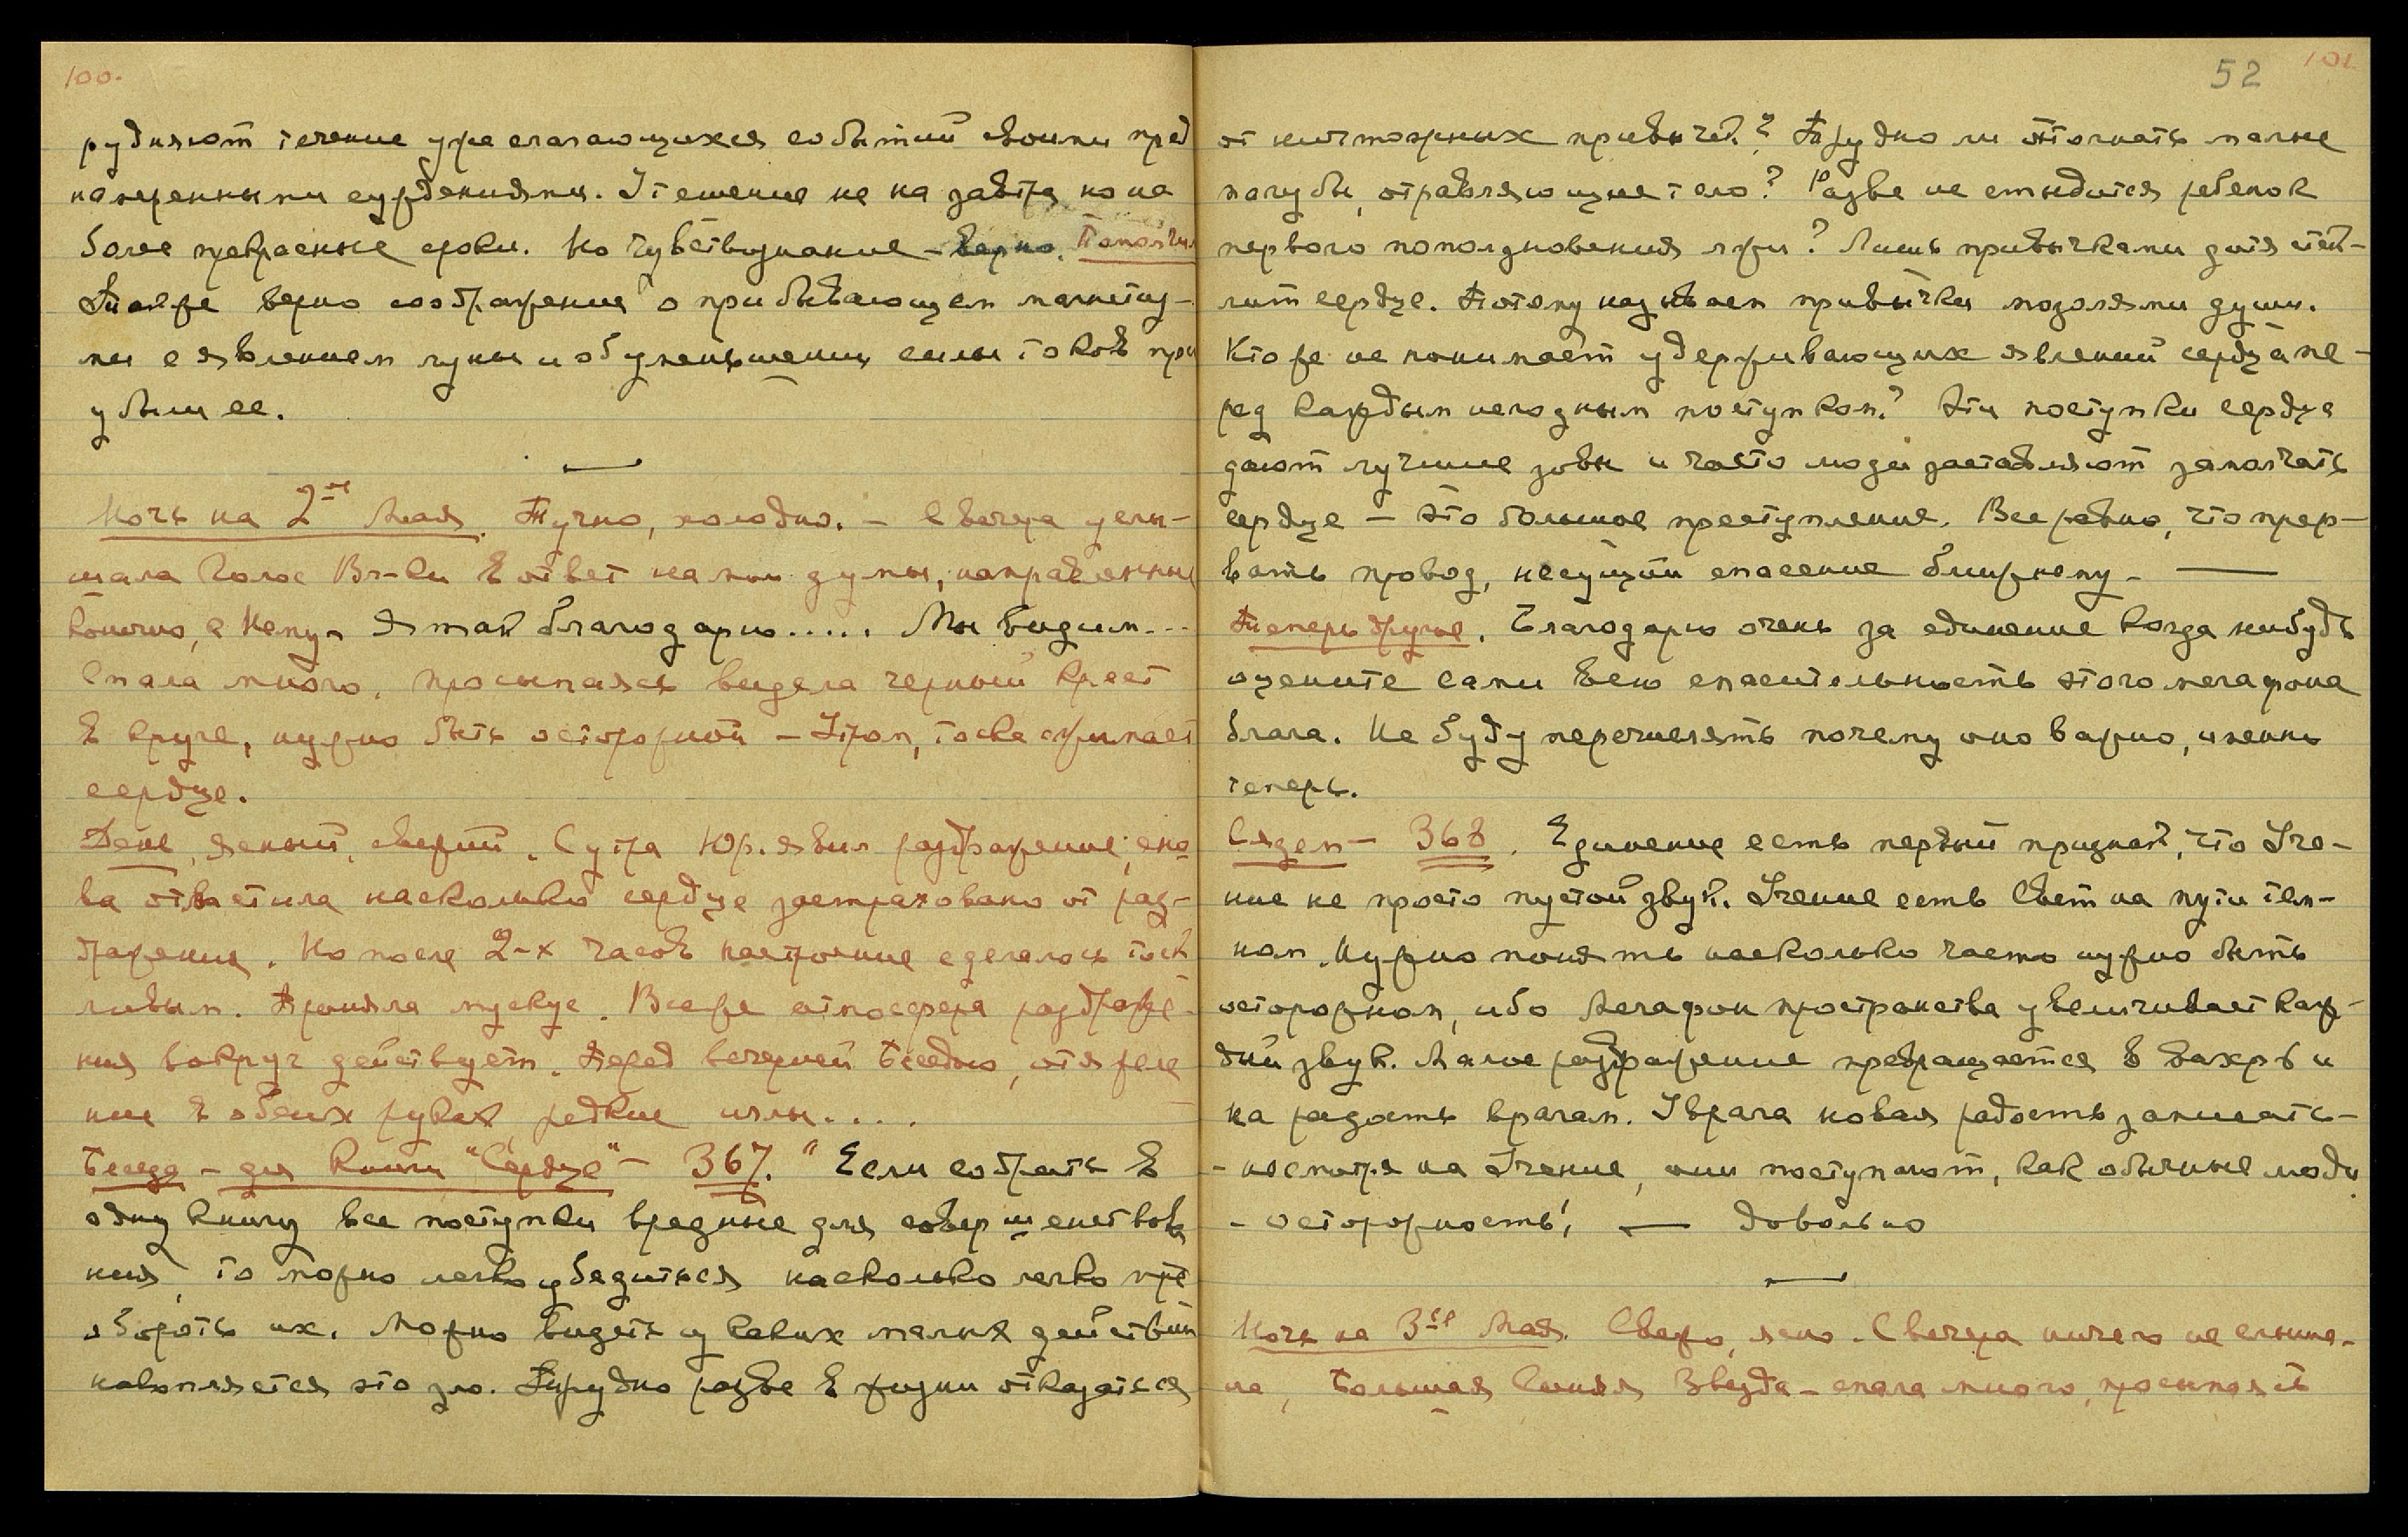 100.
рудняют течение уже слагающихся событий своими пред
намеренными суждениями. Утешение не на завтра, но на
более прекрасные сроки. Но Чувствознание – верно. Помолчим
Также верно соображение о прибывающем магнетиз-
ме с явлением луны и об уменьшении силы токов при
убыли ее.
—
Ночь на 2-ое Мая. Тучно, холодно. – С вечера услы-
шала Голос Вл-ки в ответ на мои думы, направленные
конечно, к Нему – Я так благодарю..... Мы видим...
Спала много. Просыпаясь видела черный крест
в круге, нужно быть осторожной – Утром, тоска сжимает
сердце.
День, ясный, свежий. С утра Юр. явил раздражение, сно
ва отметила насколько сердце застраховано от раз-
дражения. Но после 2-х часов настроение сделалось тоск
ливым. Приняла мускус. Все же атмосфера раздраже-
ния вокруг действует. Перед вечерней Беседою, отяжеле
ние в обеих руках, редкие иглы....
Беседа – для Книги "Сердце" – 367. "Если собрать в
одну книгу все поступки вредные для совершенствова
ния, то можно легко убедиться насколько легко пре
обороть их. Можно видеть из каких малых действий
накопляется это зло. Трудно разве в жизни отказаться
52 101
от ничтожных привычек? Трудно ли отогнать малые
пагубы, отравляющие тело? Разве не стыдится ребенок
первого поползновения лжи? Лишь привычками дитя отяг-
лит сердце. Потому называем привычки мозолями души.
Кто же не понимает удерживающих явлений сердца пе-
ред каждым негодным поступком? Эти поступки сердце
дают лучшие зовы и часто люди заставляют замолчать
сердце – это большое преступление. Все равно, что прер-
вать провод, несущий спасение ближнему. —
Теперь другое. Благодарю очень за единение когда нибудь
оцените сами всю спасительность этого мегафона
блага. Не буду перечислять почему оно важно, именно
теперь.
Сядем – 368. Единение есть первый признак, что Уче-
ние не просто пустой звук. Учение есть Свет на пути тем-
ном. Нужно понять насколько часто нужно быть
осторожном, ибо Мегафон пространства увеличивает каж-
дый звук. Малое раздражение превращается в вихрь и
на радость врагам. У врага новая радость записать –
– несмотря на Учение, они поступают, как обычные люди.
– осторожность! — довольно
—
Ночь на 3-ье Мая. Свежо, ясно. С вечера ничего не слыша-
ла, Большая Синяя Звезда – спала много, просыпаясь